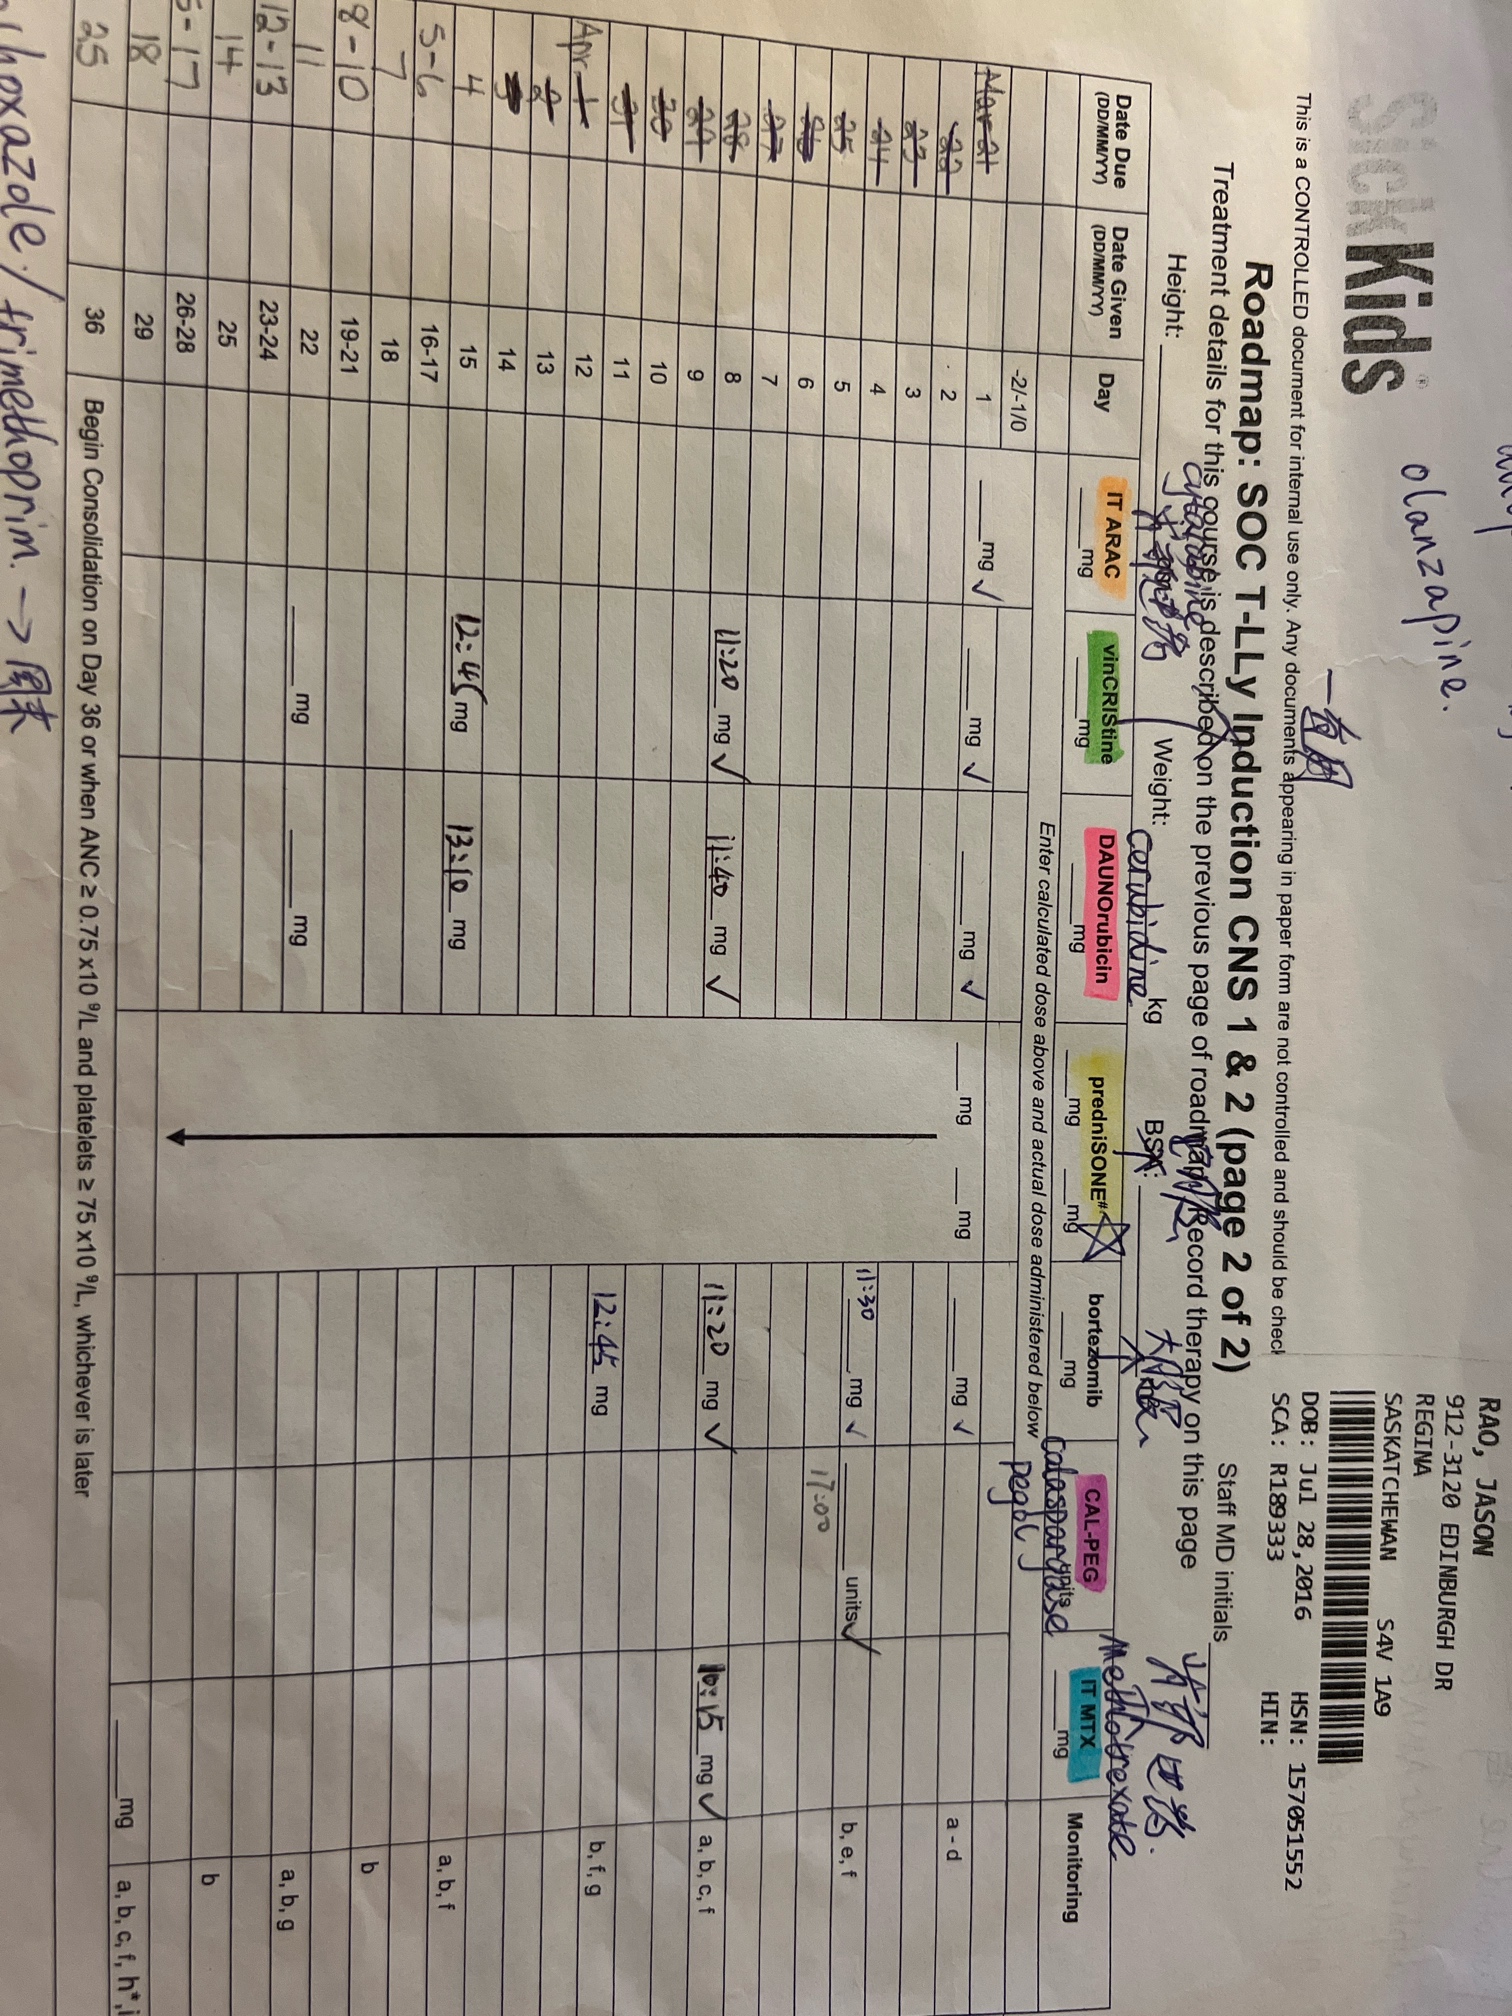 olanzapine.
SickKids®
RAO, JASON
912-3120 EDINBURGH DR
REGINA
SASKATCHEWAN S4V 1A9
DOB: Jul 28,2016 HSN: 157051552
SCA: R189333 HIN:
This is a CONTROLLED document for internal use only. Any documents appearing in paper form are not controlled and should be check
Roadmap: SOC T-LLy Induction CNS 1 & 2 (page 2 of 2)
Treatment details for this course is described on the previous page of roadmap. Record therapy on this page
Staff MD initials
Height: Weight: kg BSA:
cytarabine cerubidine
Methotrexate
Date Due (DD/MM/YY) Date Given (DD/MM/YY) Day IT ARAC ___mg vinCRIStine ___mg DAUNOrubicin ___mg predniSONE# ___mg ___mg bortezomib ___mg CAL-PEG units IT MTX ___mg Monitoring
calaspargase
pegol
-2/-1/0 Enter calculated dose above and actual dose administered below
Mar 21 1 ___mg ✓ ___mg ✓ ___mg ✓ ___mg ___mg ___mg ✓ a - d
22 2
23 3
24 4 11:30 mg ✓ ___units ✓ b, e, f
25 5 17:00
26 6
27 7
28 8 11:20 mg ✓ 11:40 mg ✓ 11:20 mg ✓ 10:15 mg ✓ a, b, c, f
29 9
30 10
31 11 12:45 mg b, f, g
Apr 1 12
2 13
3 14
4 15 12:45 mg 13:10 mg a, b, f
5-6 16-17
7 18 b
8-10 19-21
11 22 ___mg ___mg a, b, g
12-13 23-24
14 25 b
5-17 26-28
18 29 ___mg a, b, c, f, h*, i
25 36 Begin Consolidation on Day 36 or when ANC ≥ 0.75 x10 ⁹/L and platelets ≥ 75 x10 ⁹/L, whichever is later
hoxazole / trimethoprim. → 周末